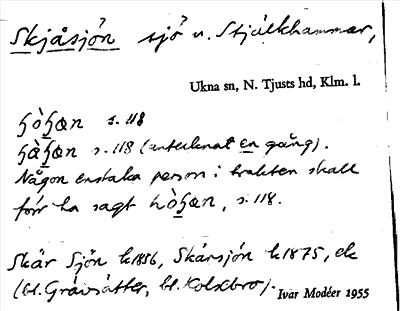 Skjåsjön sjö v. Stjälkhammar,
Ukna sn, N. Tjusts hd, Klm. l.
s. 118
s. 118 (antecknat en gång).
Någon enstaka person i trakten skall
förr ha sagt s. 118.
Skär Sjön k 1856, Skärsjön k 1875, ek
(bl. Gråvsätter, bl. Kolsebro).
Ivar Modéer 1955